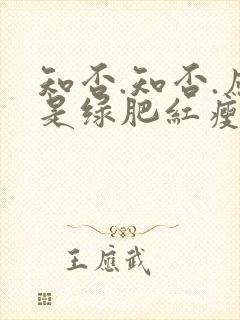 知否.知否.应
是绿肥红瘦
王应武